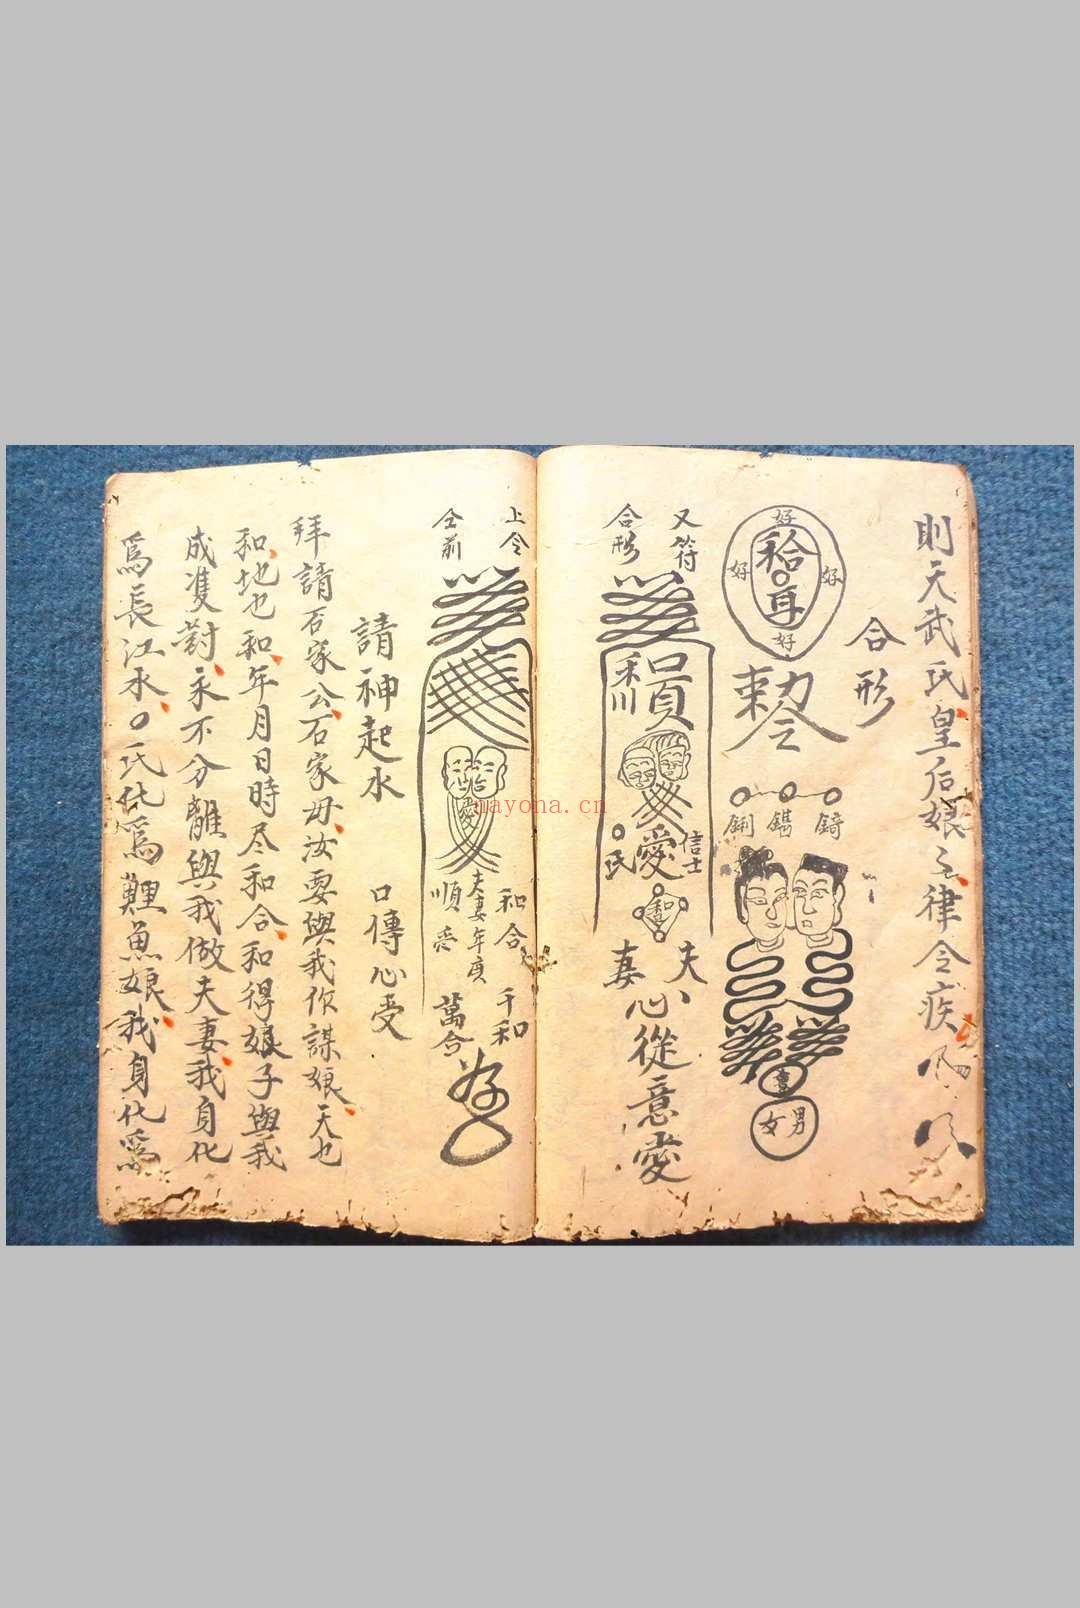 則天武氏皇后娘々律令疾
合形
好
好
好
好
勅令
女男
又符
合形
信士
愛
氏
夫
妻
心從意愛
上令
仝前
和合
千和
夫妻年庚
順
萬合
好
請神起水
口傳心受
拜請石家公石家母汝要與我你謀娘天也
和地也和年月日時尽和合和得娘子與我
成隻對永不分離與我做夫妻我身化
爲長江水〇氏化爲鯉魚娘我身化爲
nayona.cn